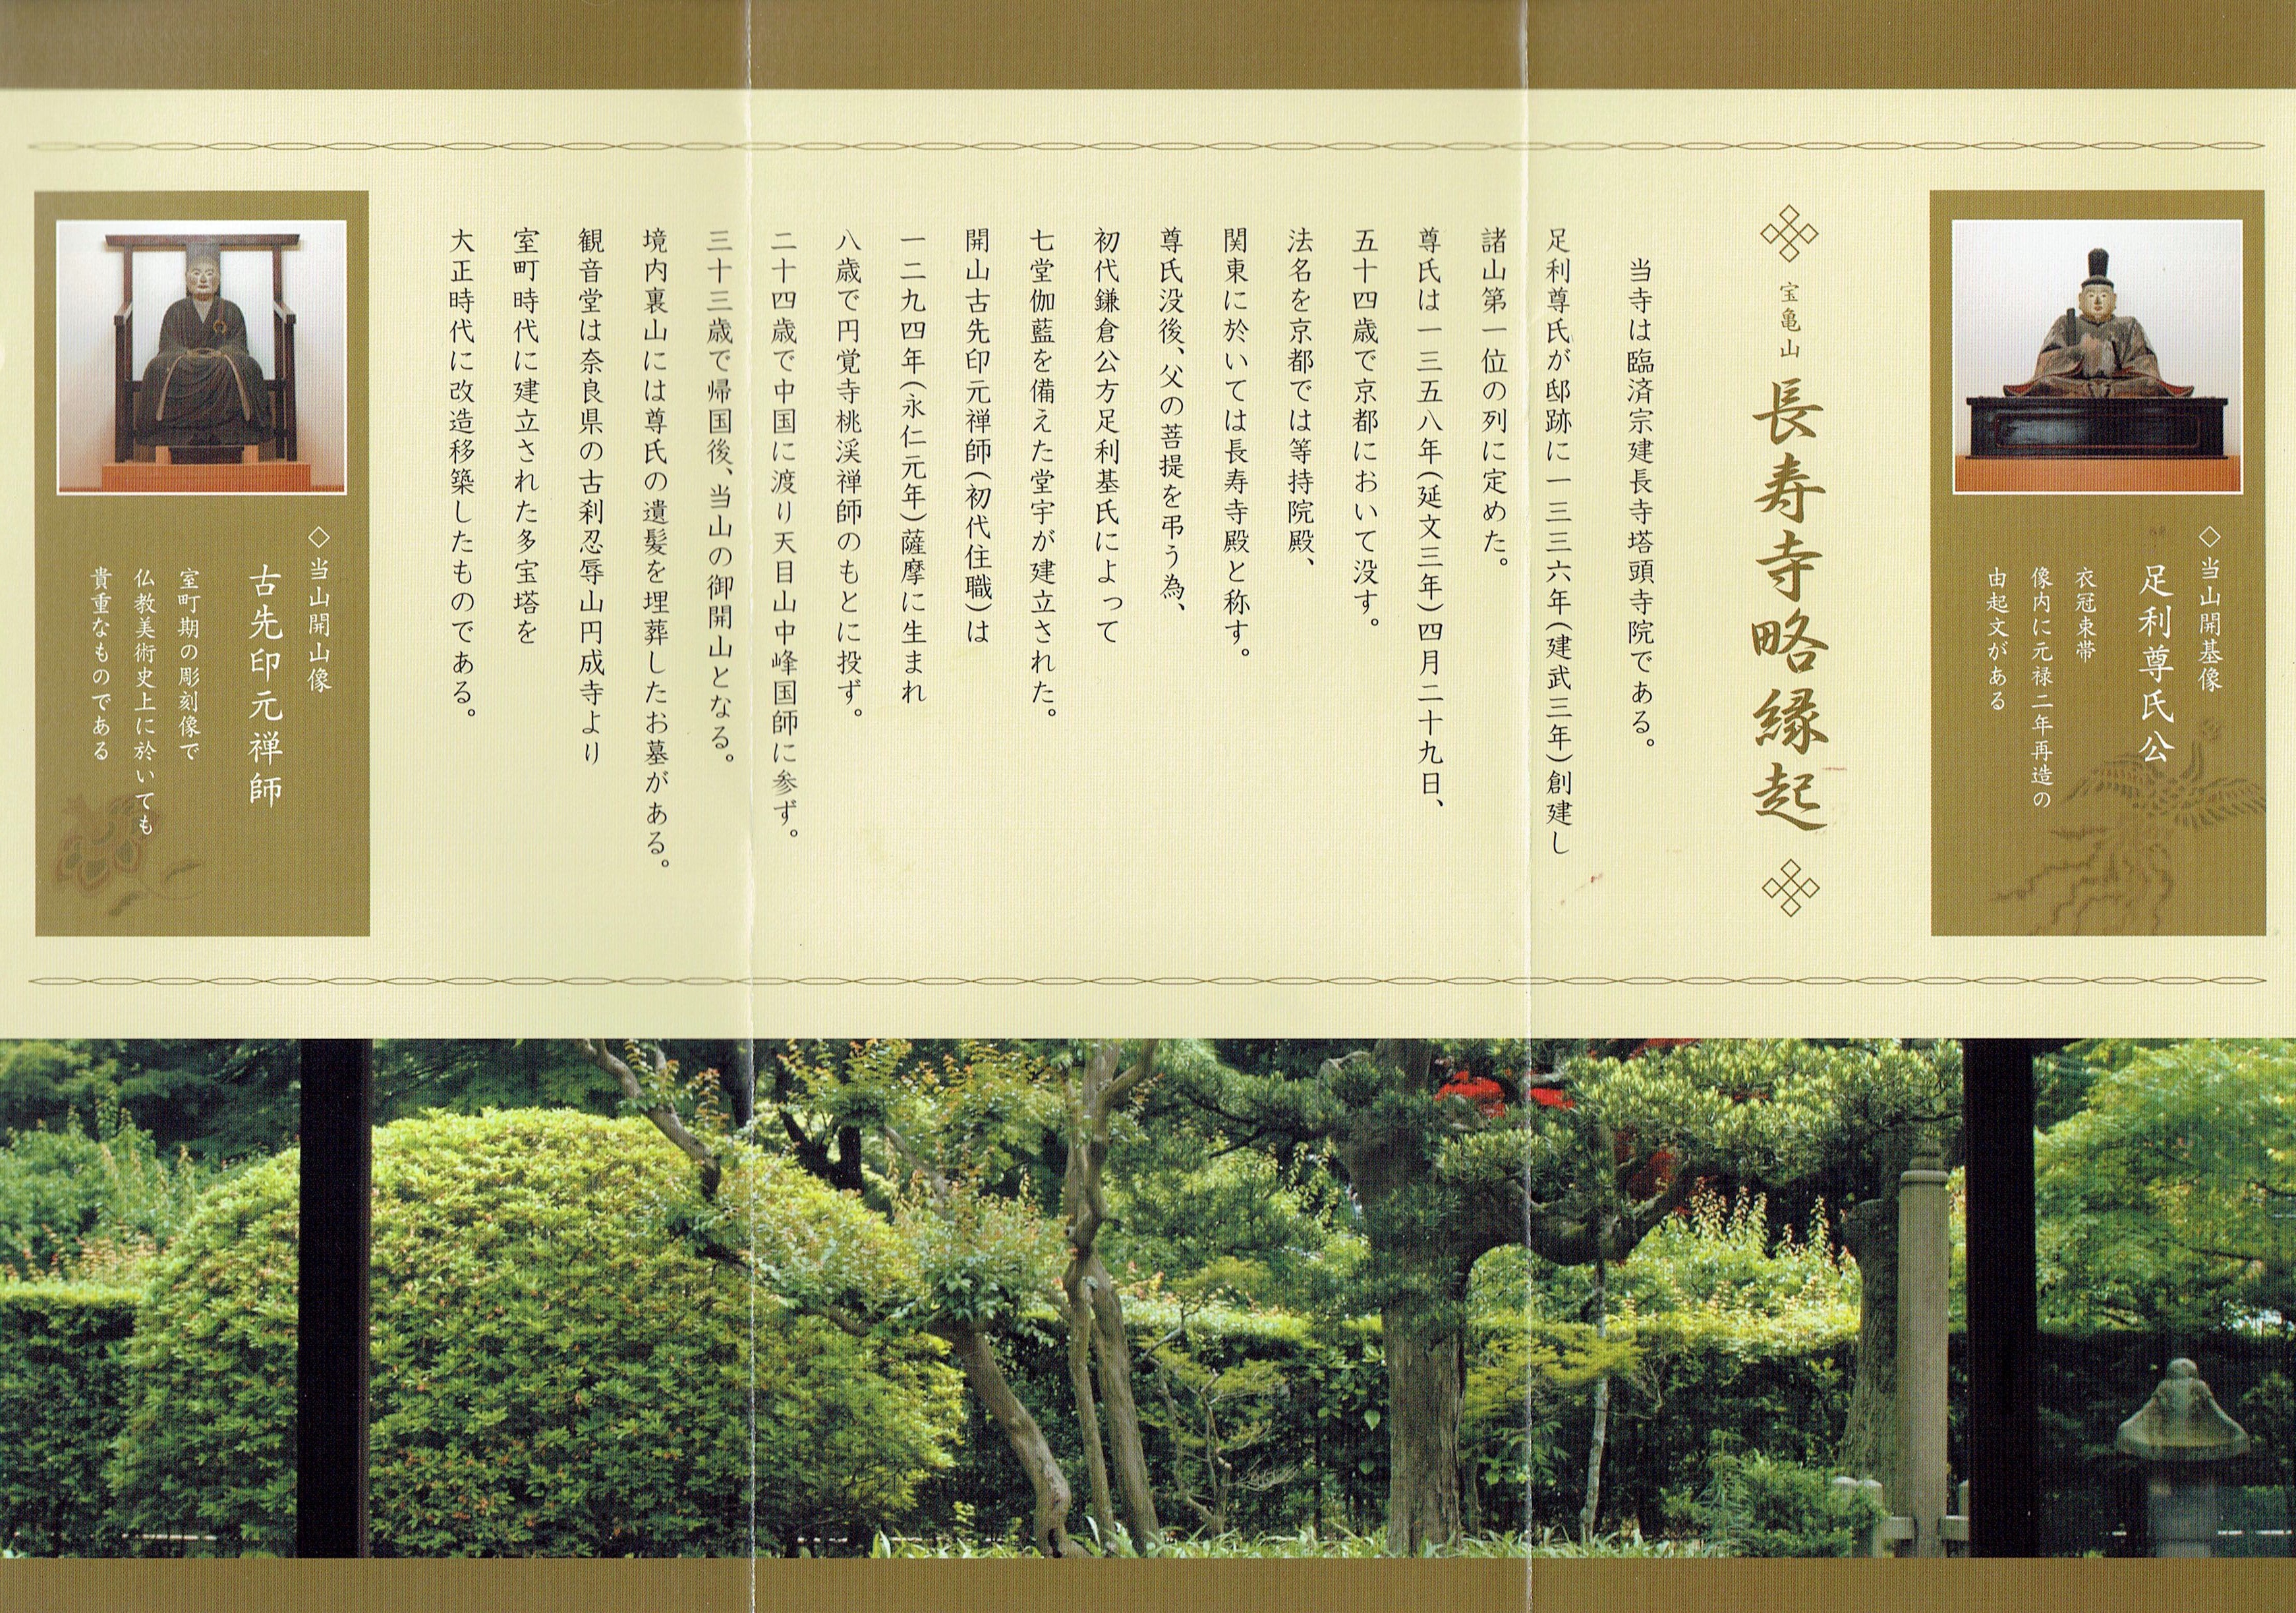 ◇当山開基像
足利尊氏公
衣冠束帯
像内に元禄二年再造の
由起文がある
宝亀山 長寿寺略縁起
当寺は臨済宗建長寺塔頭寺院である。
足利尊氏が邸跡に一三三六年(建武三年)創建し
諸山第一位の列に定めた。
尊氏は一三五八年(延文三年)四月二十九日、
五十四歳で京都において没す。
法名を京都では等持院殿、
関東に於いては長寿寺殿と称す。
尊氏没後、父の菩提を弔う為、
初代鎌倉公方足利基氏によって
七堂伽藍を備えた堂宇が建立された。
開山古先印元禅師(初代住職)は
一二九四年(永仁元年)薩摩に生まれ
八歳で円覚寺桃渓禅師のもとに投ず。
二十四歳で中国に渡り天目山中峰国師に参ず。
三十三歳で帰国後、当山の御開山となる。
境内裏山には尊氏の遺髪を埋葬したお墓がある。
観音堂は奈良県の古刹忍辱山円成寺より
室町時代に建立された多宝塔を
大正時代に改造移築したものである。
◇当山開山像
古先印元禅師
室町期の彫刻像で
仏教美術史上に於いても
貴重なものである